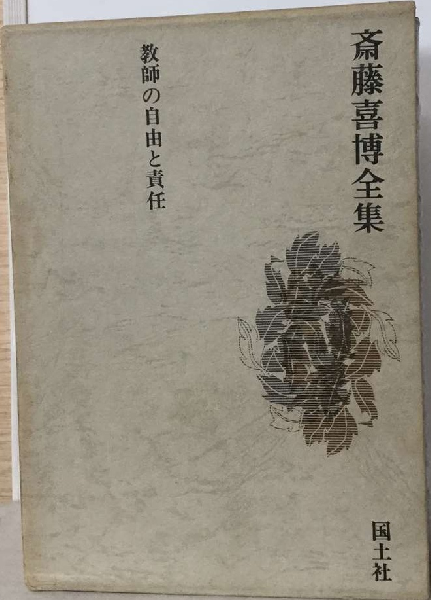 斎藤喜博全集
教師の自由と責任
国土社